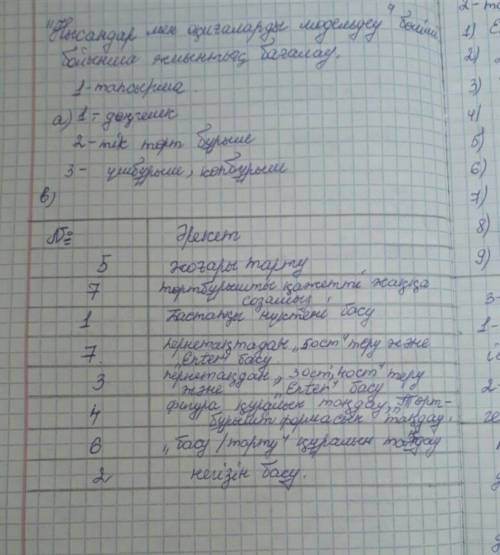 "Нысандар мен оқиғаларды модельдеу" бөлімі
бойынша жиынтық бағалау.
1-тапсырма.
а) 1 - дөңгелек
2 - тік төрт бұрыш
3 - үшбұрыш, көпбұрыш
в)
№ Әрекет
5 жоғары тарту
7 төртбұрышты қажетті жаққа созамыз
1 Бастапқы нүктені басу
7. Пернетақтадан „5ост" теру және „Enter" басу
3 пернетақдан „30ст, 40ст" теру және „Enter" басу
4 фигура құралын таңдау, „Төрт-бұрыш" формасын таңдау.
6 „басу/тарту" құралын таңдау
2 негізін басу.
2-та
1) С
2)
3)
4)
5)
6)
7)
8)
9)
3-
1-
2-